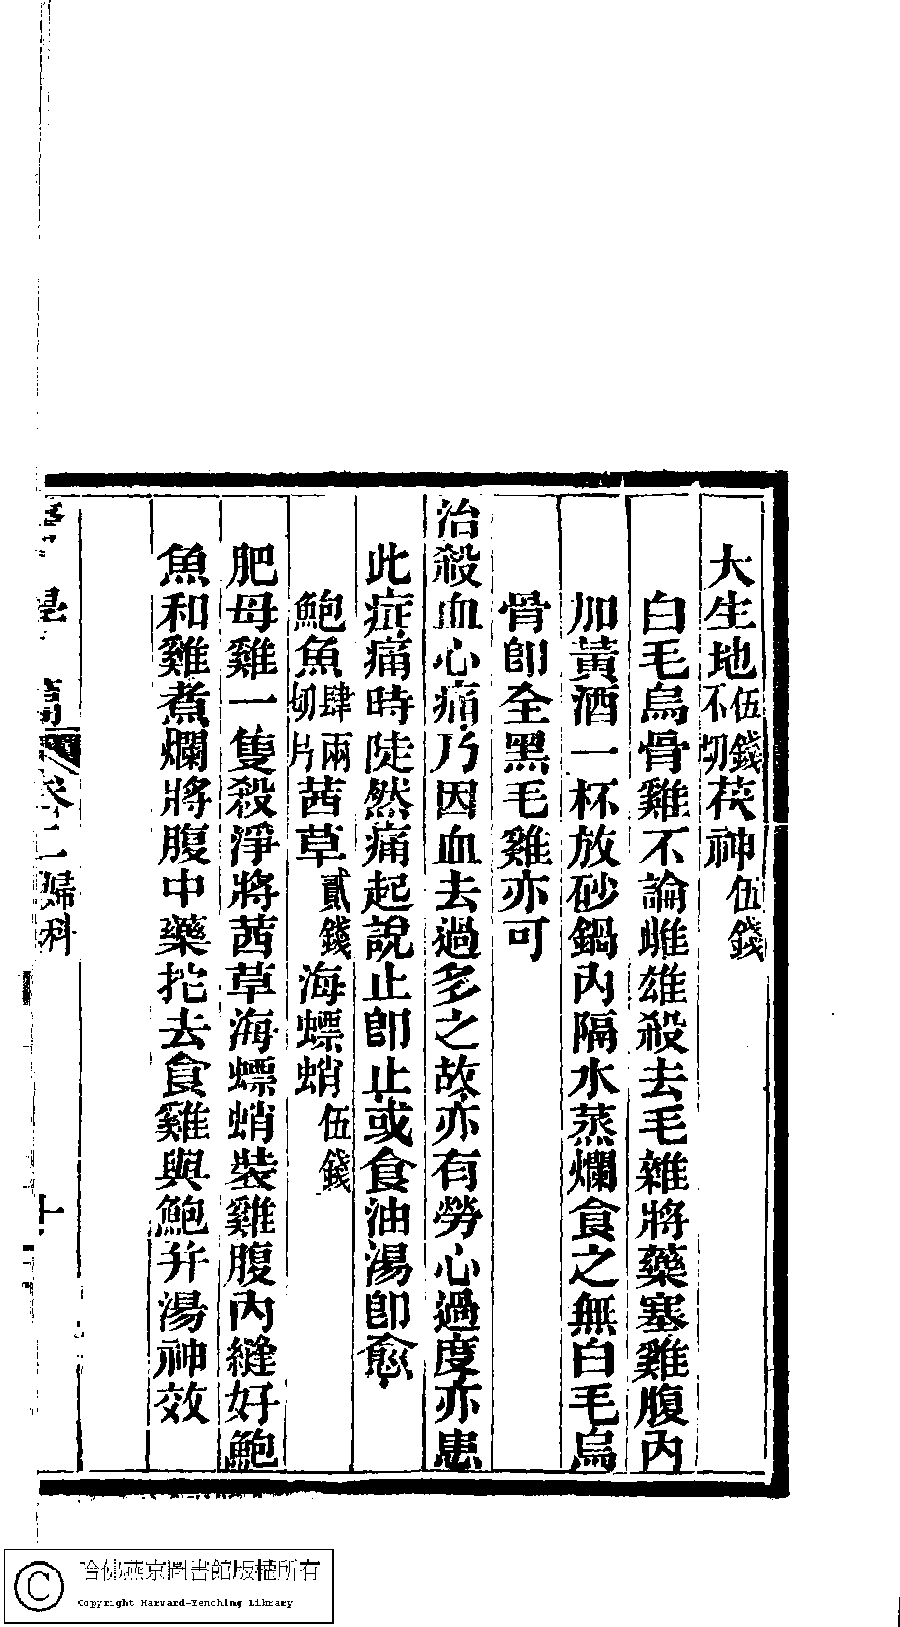 大生地伍錢不切茯神伍錢
白毛烏骨雞不論雌雄殺去毛雜將藥塞雞腹內
加黃酒一杯放砂鍋內隔水蒸爛食之無白毛烏
骨卽全黑毛雞亦可
治殺血心痛乃因血去過多之故亦有勞心過度亦患
此症痛時陡然痛起說止卽止或食油湯卽愈
鮑魚肆兩切片茜草貳錢海螵蛸伍錢
肥母雞一隻殺淨將茜草海螵蛸裝雞腹內縫好鮑
魚和雞煮爛將腹中藥挖去食雞與鮑并湯神效
卷二婦科
十
哈佛燕京圖書館版權所有
Copyright Harvard-Yenching Library